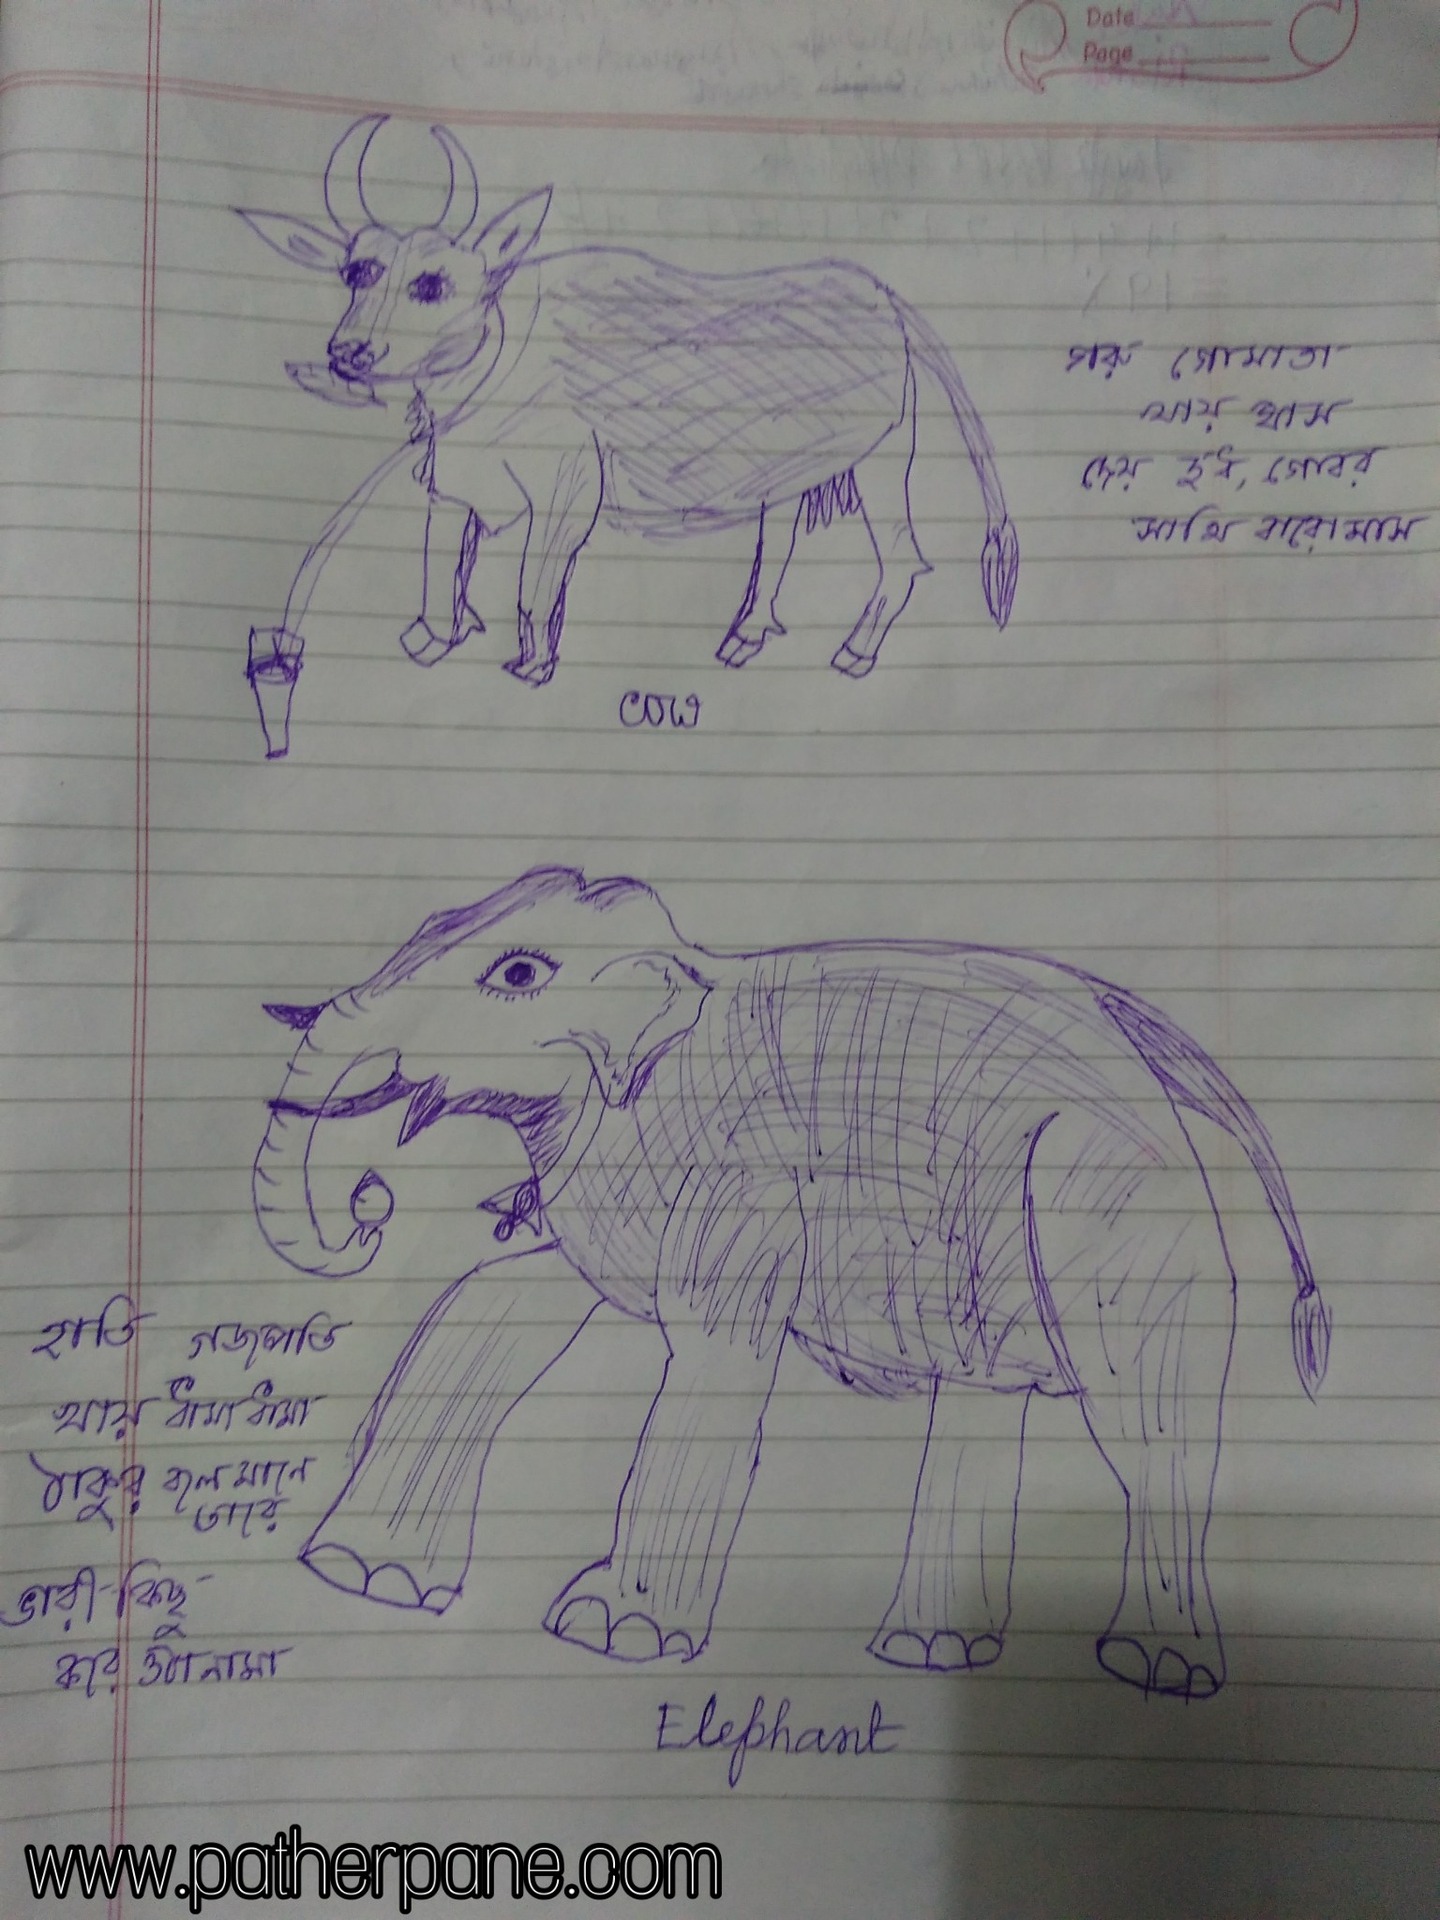 Date
Page
গরু গোমাতা
খায় ঘাস
দেয় দুধ, গোবর
সাথি বারোমাস
COW
হাতি গজপতি
খায় ধামা ধামা
ঠাকুর বলে মানে
তারে
ভারী কিছু
করে ওঠা নামা
Elephant
www.patherpane.com